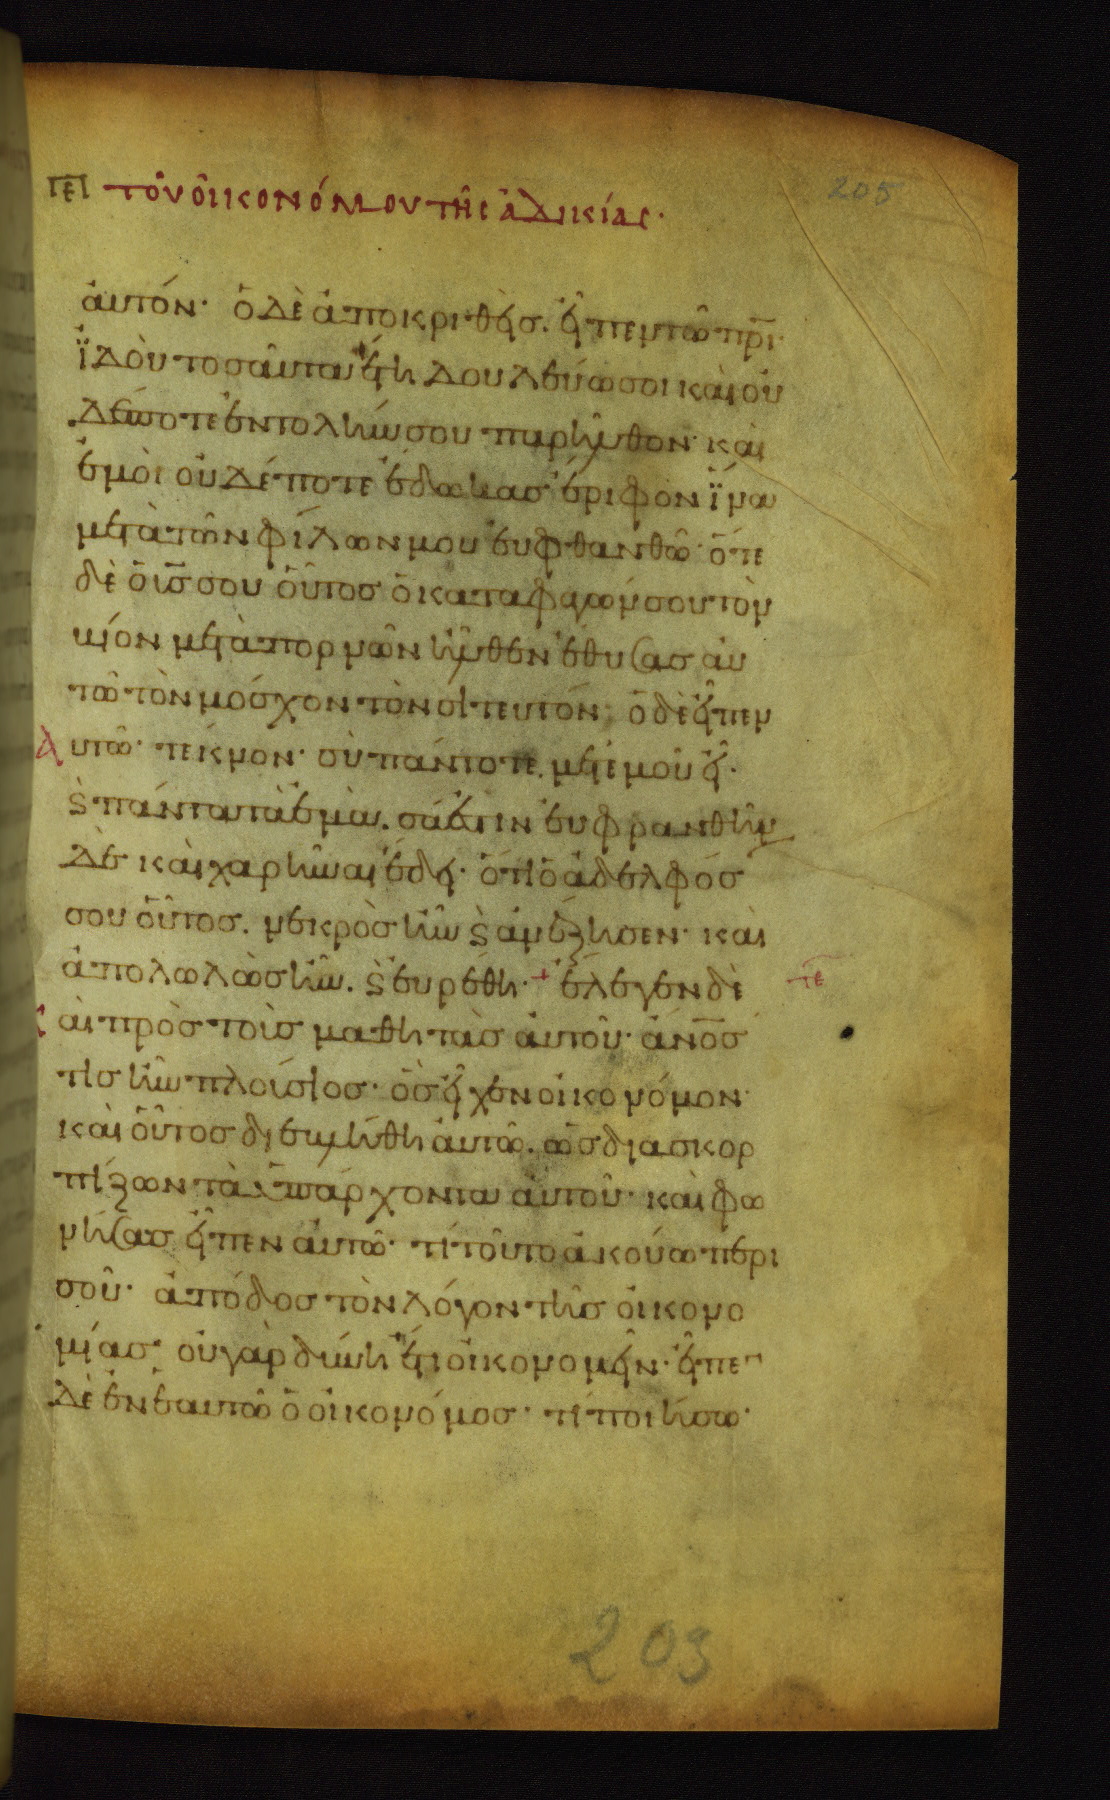 πε τοῦ οἰκονόμου τῆς ἀδικίας·
205
ἀυτόν· ὁ δὲ ἀποκριθεὶσ. εἶπεν τῶ πρι·
ἰδοὺ τοσαῦτα ἔτη δουλεύω σοι καὶ οὐ
δέποτε ἐντολήν σου παρῆλθον· καὶ
ἐμοὶ οὐδέποτε ἔδωκασ ἔριφον ἵνα
μετὰ τῶν φίλων μου ευφθανθῶ· ὅτε
δὲ ὁ υἱσ σου οὗτοσ ὁ καταφαγών σου τὸν
βίον μετὰ πορνῶν ἦλθεν ἔθυσασ ἀυ
τῶ τὸν μόσχον τὸν σιτευτόν· ὁ δὲ εἶπεν
αυτῶ· τέκνον· σὺ πάντοτε μετ ἐμοῦ εἶ·
ϗ πάντα τὰ ἐμὰ. σά ἐστιν ευφρανθῆν
δε καὶ χαρῆναι ἔδει· ὅτι ὁ ἀδελφόσ
σου οὗτοσ. νεκρὸσ ἦν ϗ ἀνέζησεν· καὶ
ἀπολωλὼσ ἦν. ϗ ἑυρέθη· + ἔλεγεν δὲ
τε
κὰι πρὸσ τοὺσ μαθητὰσ ἀυτοῦ· ἀνοσ
τισ ἦν πλούσιοσ· ὃσ εἶχεν οἰκονόμον·
καὶ οὗτοσ διεβλήθη ἀυτῶ. ὡσ διασκορ
πίζων τὰ ὑπάρχοντα ἀυτοῦ· καὶ φω
νήσασ εἶπεν ἀυτῶ· τί τοῦτο ἀκούω περι
σοῦ· ἀπόδοσ τὸν λόγον τῆσ οἰκονο
μίασ· οὐ γὰρ δυνήι ἔτι οἰκονομεῖν· εἶπε
δὲ ἐν ἑαυτῶ ὁ οἰκονόμοσ· τί ποιήσω·
203